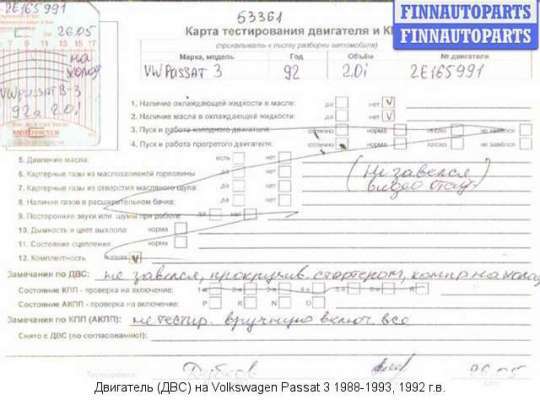 2E165991
26.05
на
холод
VW PASSAT B-3
92г. 2.0i
53361
FINNAUTOPARTS
FINNAUTOPARTS
Карта тестирования двигателя и К
(прикалывать к листу разборки автомобиля)
Марка, модель Год Объём № двигателя
VW PASSAT 3 92 2.0i 2E165991
1. Наличие охлаждающей жидкости в масле: да нет V
2. Наличие масла в охлаждающей жидкости: да нет V
3. Пуск и работа холодного двигателя: отлично норма не завелся
4. Пуск и работа прогретого двигателя: отлично норма не завелся
5. Давление масла: есть нет
6. Картерные газы из маслозаливной горловины да нет
7. Картерные газы из отверстия масляного щупа: да нет
8. Наличие газов в расширительном бачке: да нет
(Не завелся)
9. Посторонние звуки или шумы при работе да нет
10. Дымность и цвет выхлопа норма
11. Состояние сцепления норма
12. Комплектность V
Замечания по ДВС: не завелся, прокрутив стартером, компр на холод
Состояние КПП - проверка на включение:
Состояние АКПП - проверка на включение: P R N D
Замечания по КПП (АКПП): не тестир. вручную включ. все
Снято с ДВС (по согласованию):
Двигатель (ДВС) на Volkswagen Passat 3 1988-1993, 1992 г.в.